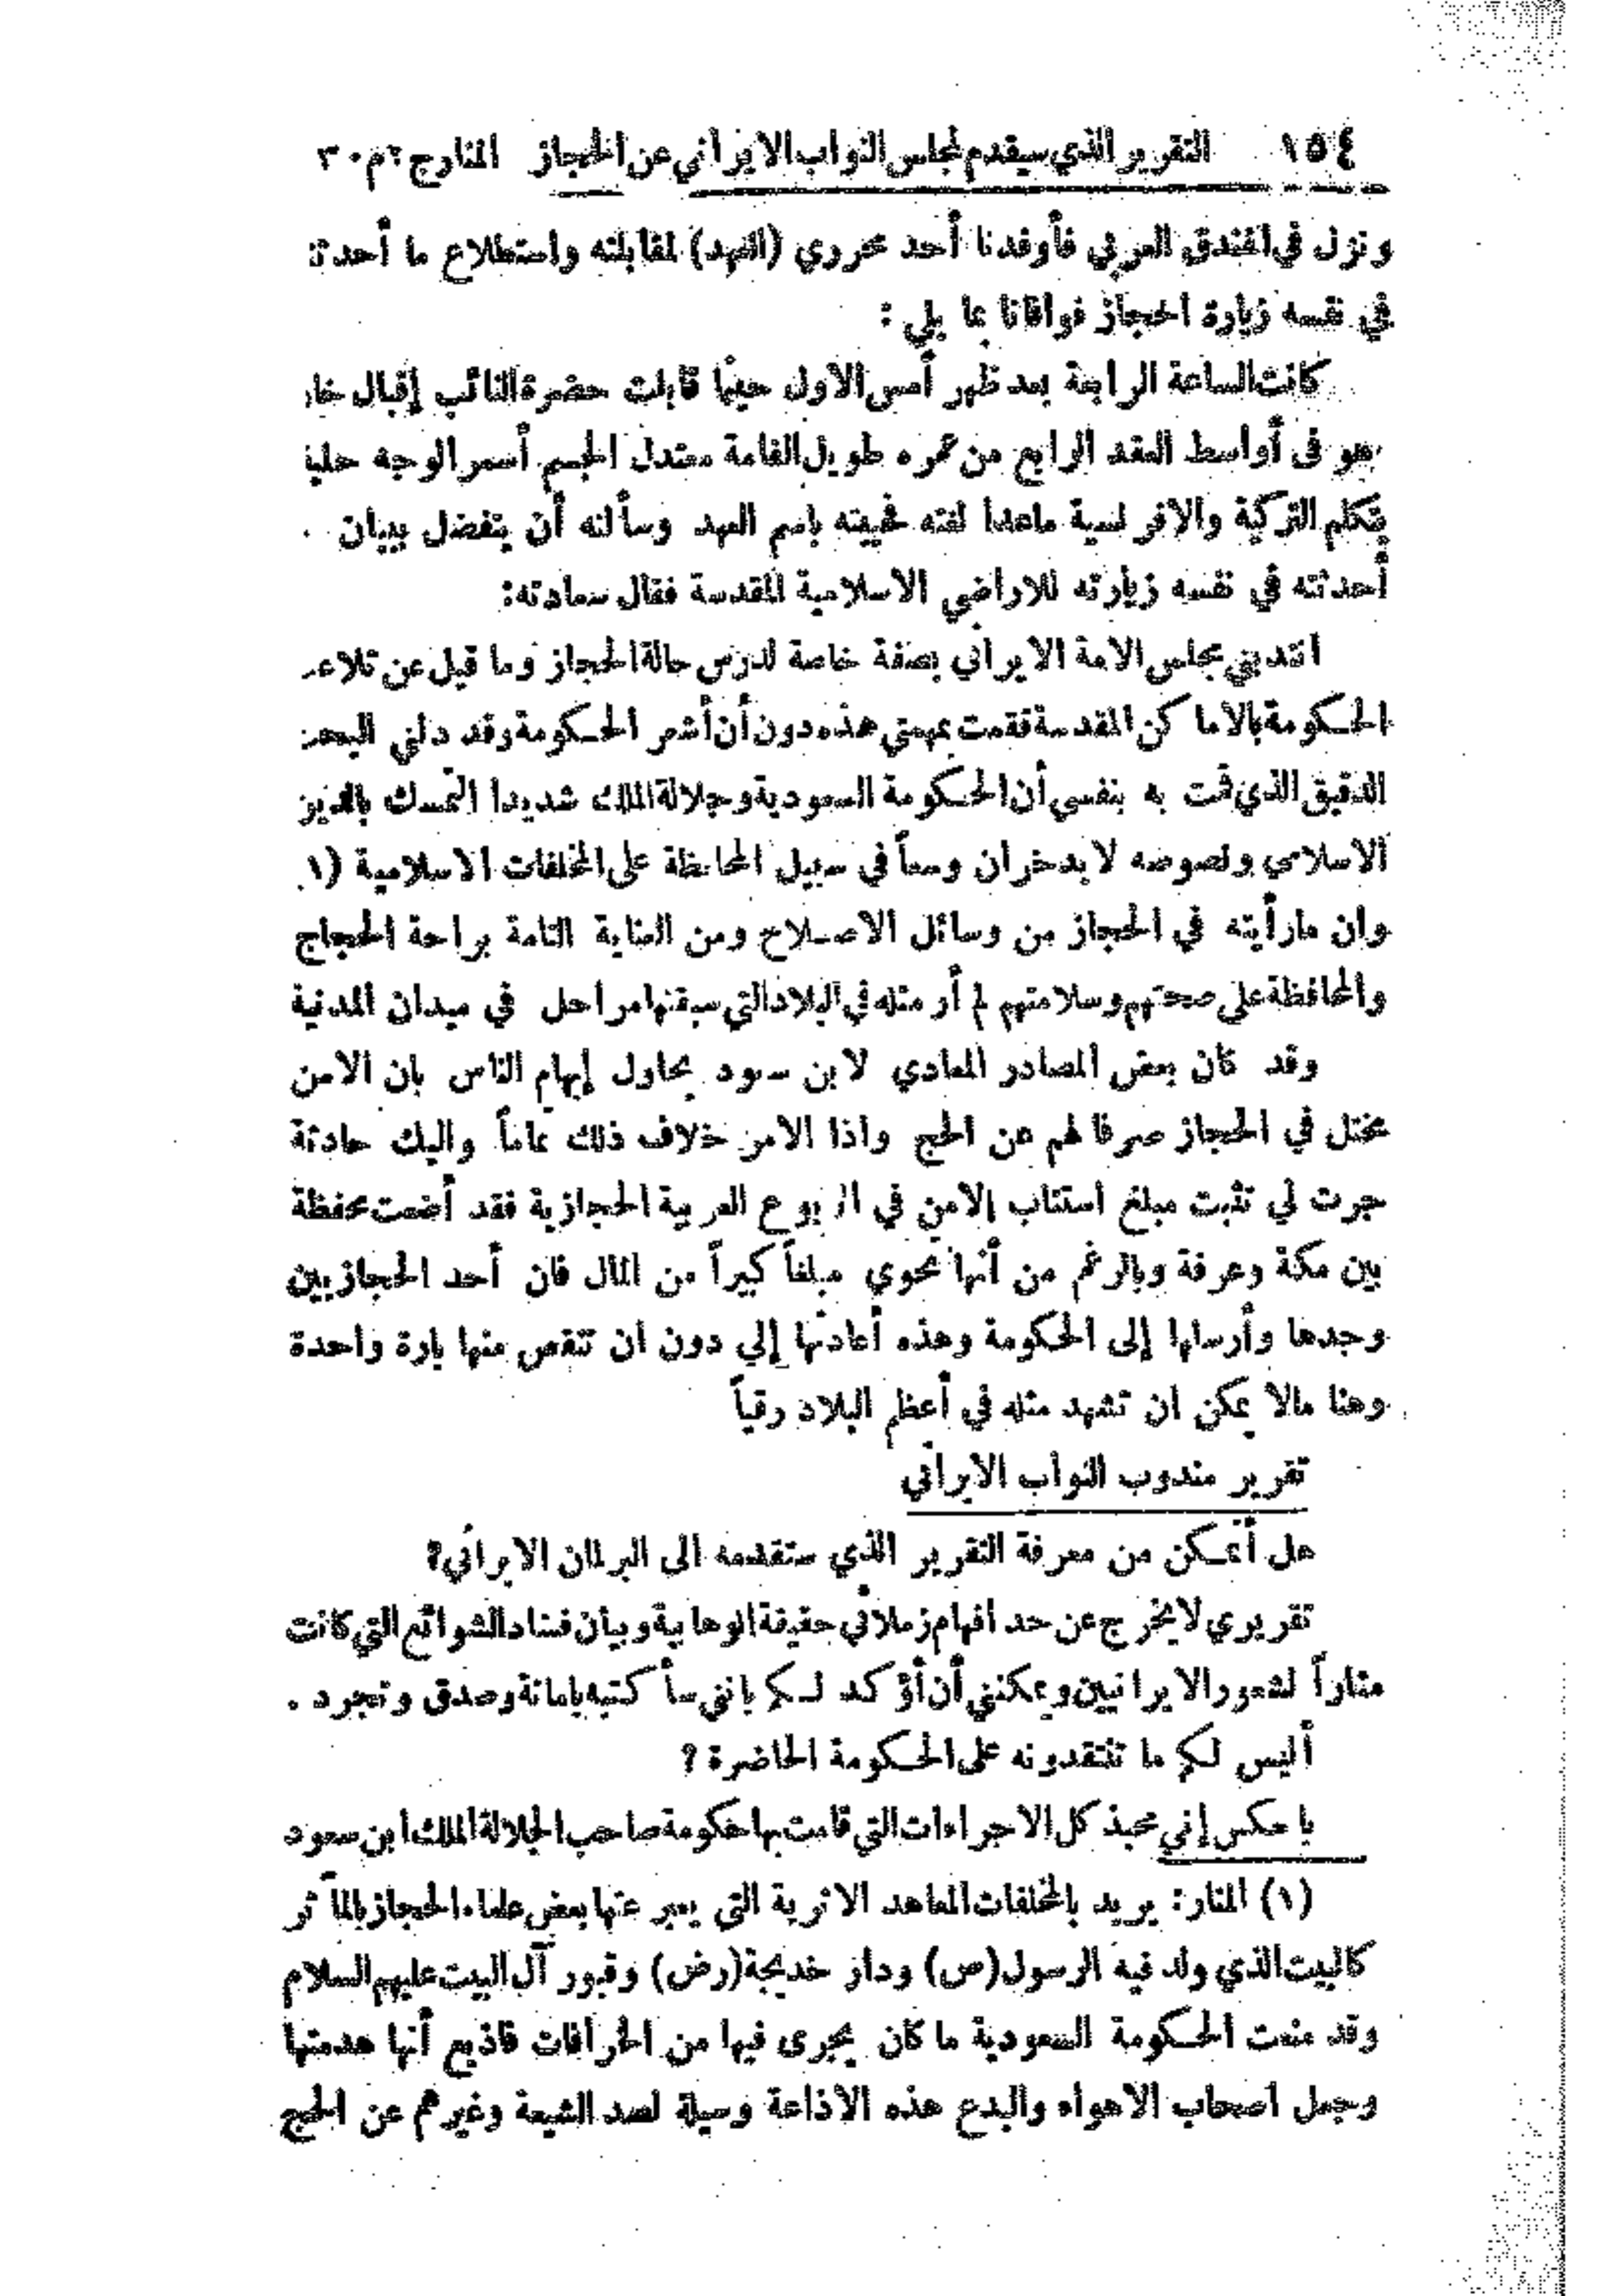 ١٥٤ التقرير الذي سيقدم لمجلس النواب الايراني عن الحجاز المنار ج ٢ م ٣٠
ونزل في الفندق العربي فأوفدنا أحد محرري (العهد) لمقابلته واستطلاع ما أحدثـ
في نفسه زيارة الحجاز فوافانا بما يلي :
كانت الساعة الرابعة بعد ظهر أمس الاول حينما قابلت حضرة النائب إقبال خا
هو فى أواسط العقد الرابع من عمره طويل القامة معتدل الجسم أسمر الوجه حليـ
يتكلم التركية والافرنسية ماعدا لغته فحييته باسم العهد وسألته أن يتفضل ببيان
أحدثته في نفسه زيارته للاراضي الاسلامية المقدسة فقال سعادته:
انتدبني مجلس الامة الايراني بصفة خاصة لدرس حالة الحجاز وما قيل عن تلاعـ
الحكومة بالاماكن المقدسة فقمت بمهمتي هذه دون أن أشعر الحكومة وقد دلني البحث
الدقيق الذي قمت به بنفسي أن الحكومة السعودية وجلالة الملك شديدا التمسك بالدين
الاسلامي ونصوصه لا يدخران وسعاً في سبيل المحافظة على المخلفات الاسلامية (١
وان مارأيته في الحجاز من وسائل الاصلاح ومن العناية التامة براحة الحجاج
والمحافظة على صحتهم وسلامتهم لم أر مثله في البلاد التي سبقتها مراحل في ميدان المدنية
وقد كان بعض المصادر المعادي لابن سعود يحاول إيهام الناس بان الامن
مختل في الحجاز صرفا لهم عن الحج واذا الامر خلاف ذلك تماماً واليك حادثة
جرت لي تثبت مبلغ استتاب الامن في الربوع العربية الحجازية فقد أضعت محفظة
بين مكة وعرفة وبالرغم من أنها تحوي مبلغاً كبيراً من المال فان أحد الحجازيين
وجدها وأرسلها إلى الحكومة وهذه أعادتها إلي دون ان تنقص منها بارة واحدة
وهنا مالا يمكن ان تشهد مثله في أعظم البلاد رقياً
تقرير مندوب النواب الايراني
هل أتمكن من معرفة التقرير الذي ستقدمه الى البرلمان الايراني؟
تقريري لا يخرج عن حد افهام زملائي حقيقة الوهابية وبيان فساد الشوائع التي كانت
مثاراً لشعور الايرانيين ويمكنني أن أؤكد لكم بانني سأكتبه بامانة وصدق وتجرد .
أليس لكم ما تنتقدونه على الحكومة الحاضرة ؟
باحكس إني محبذ كل الاجراءات التي قامت بها حكومة صاحب الجلالة الملك ابن سعود
(١) المنار: يريد بالمخلفات المعاهد الاثرية التى يعبر عنها بعض علماء الحجاز بالمآثر
كالبيت الذي ولد فيه الرسول (ص) ودار خديجة (رض) وقبور آل البيت عليهم السلام
وقد منعت الحكومة السعودية ما كان يجرى فيها من الخرافات فاذيع أنها هدمتها
وجعل اصحاب الاهواء والبدع هذه الاذاعة وسيلة لصد الشيعة وغيرهم عن الحج